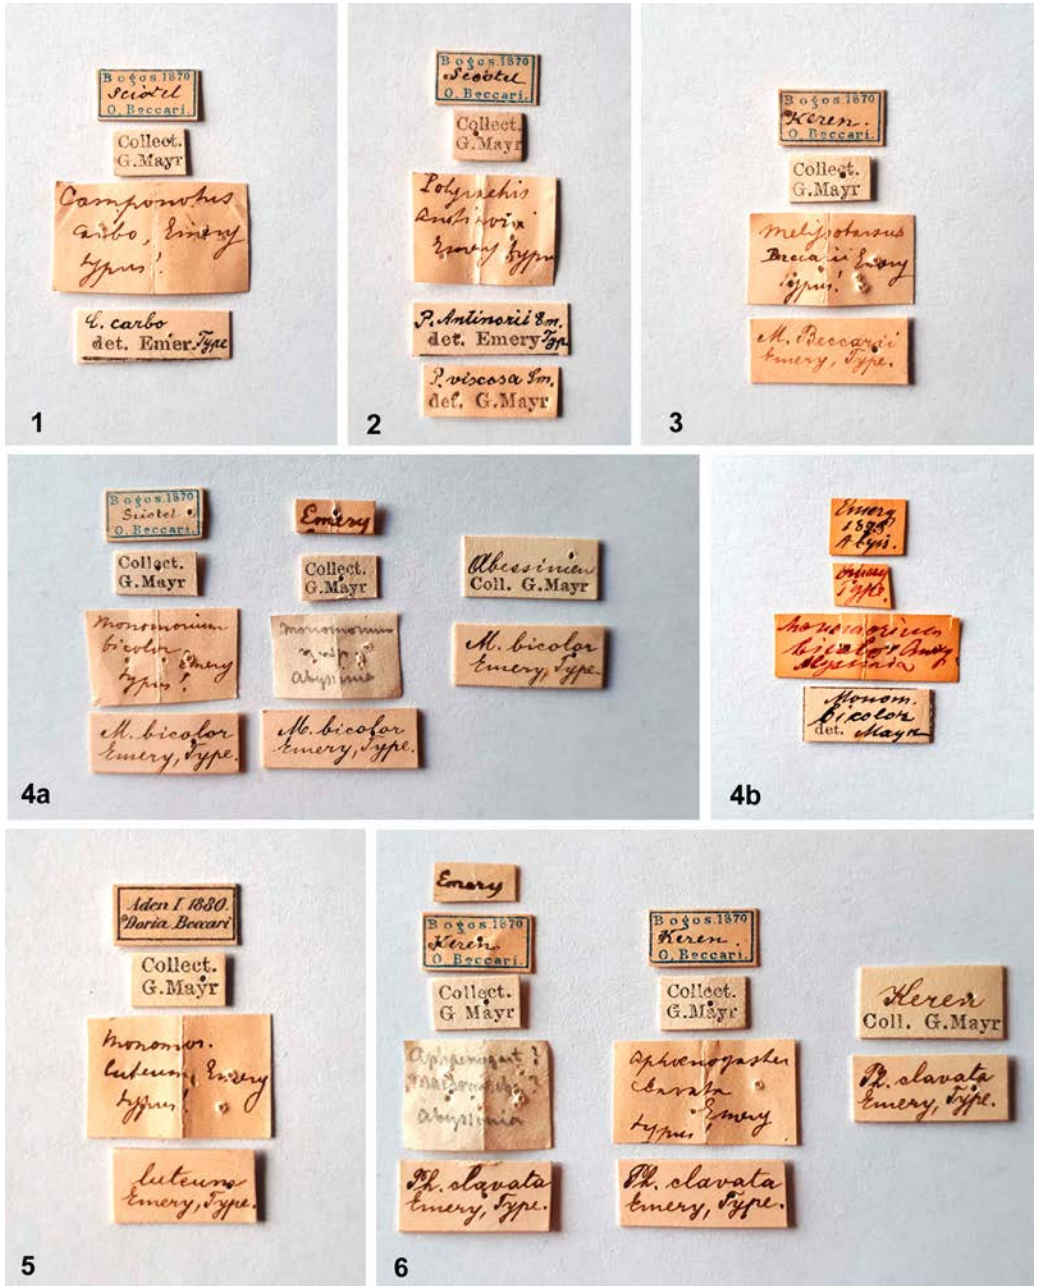 Bogos.1870
Sciotel
O. Beccari.
Collect.
G.Mayr
Camponotus
carbo, Emery
typus!
C. carbo
det. Emer. Type
1
Bogos.1870
Sciotel
O. Beccari.
Collect.
G.Mayr
Polyrachis
Antinorii
Emery typus
P. Antinorii Em.
det. Emery Typ
P. viscosa Sm.
det. G.Mayr
2
Bogos.1870
Keren.
O. Beccari.
Collect.
G.Mayr
Melissotarsus
Beccarii Emery
typus!
M. Beccarii
Emery, Type.
3
Bogos.1870
Sciotel
O. Beccari.
Collect.
G.Mayr
Monomorium
bicolor, Emery
typus!
M. bicolor
Emery, Type.
Emery
Collect.
G.Mayr
Monomorium
Abyssinia
M. bicolor
Emery, Type.
Abessinien
Coll. G.Mayr
M. bicolor
Emery, Type.
4a
Emery
Abyss.
Emery
Type.
Monomorium
bicolor Emery
Abyssinia
Monom.
bicolor
det. Mayr
4b
Aden I 1880.
Doria Beccari
Collect.
G.Mayr
Monomor.
luteum, Emery
typus!
luteum
Emery, Type.
5
Emery
Bogos.1870
Keren.
O. Beccari.
Collect.
G Mayr
Abyssinia
Ph. clavata
Emery, Type.
Bogos.1870
Keren.
O. Beccari.
Collect.
G.Mayr
Aphænogaster
clavata
Emery
typus!
Ph. clavata
Emery, Type.
Keren
Coll. G.Mayr
Ph. clavata
Emery, Type.
6